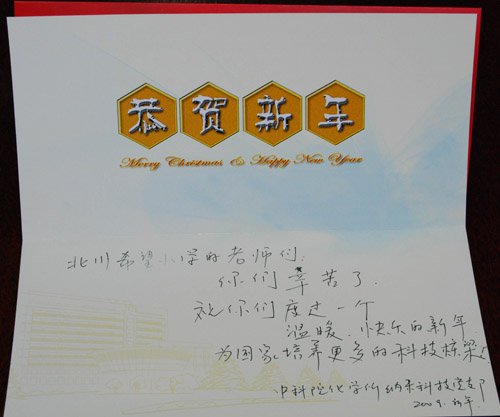 恭贺新年
Merry Christmas & Happy New Year
北川希望小学的老师们:
你们辛苦了.
祝你们度过一个
温暖、快乐的新年
为国家培养更多的科技栋梁!
中科院化学所纳米科技党支部
2009.新年